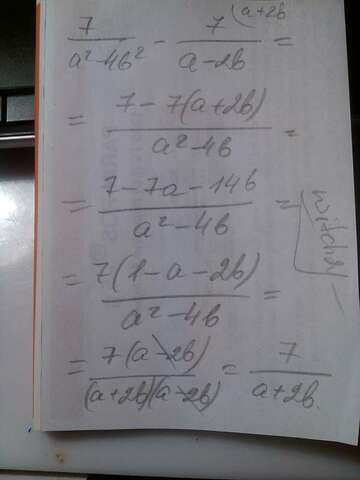 7/(a²-4b²) - 7/(a-2b) (a+2b =
= (7-7(a+2b))/(a²-4b) =
= (7-7a-14b)/(a²-4b) =
= 7(1-a-2b)/(a²-4b) =
= 7(a-2b)/((a+2b)(a-2b)) = 7/(a+2b).